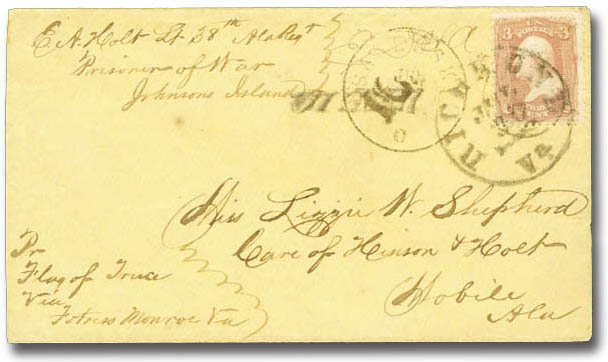 E. A. Holt Lt 38th Ala Regt
Prisoner of War
Johnsons Island
3 3
U.S. POSTAGE
SANDUSKY
O
RICHMOND
VA
Miss Lizzie W. Shepherd
Care of Hinson & Holt
Mobile
Ala
Pr
Flag of Truce
Via
Fotress Monroe Va